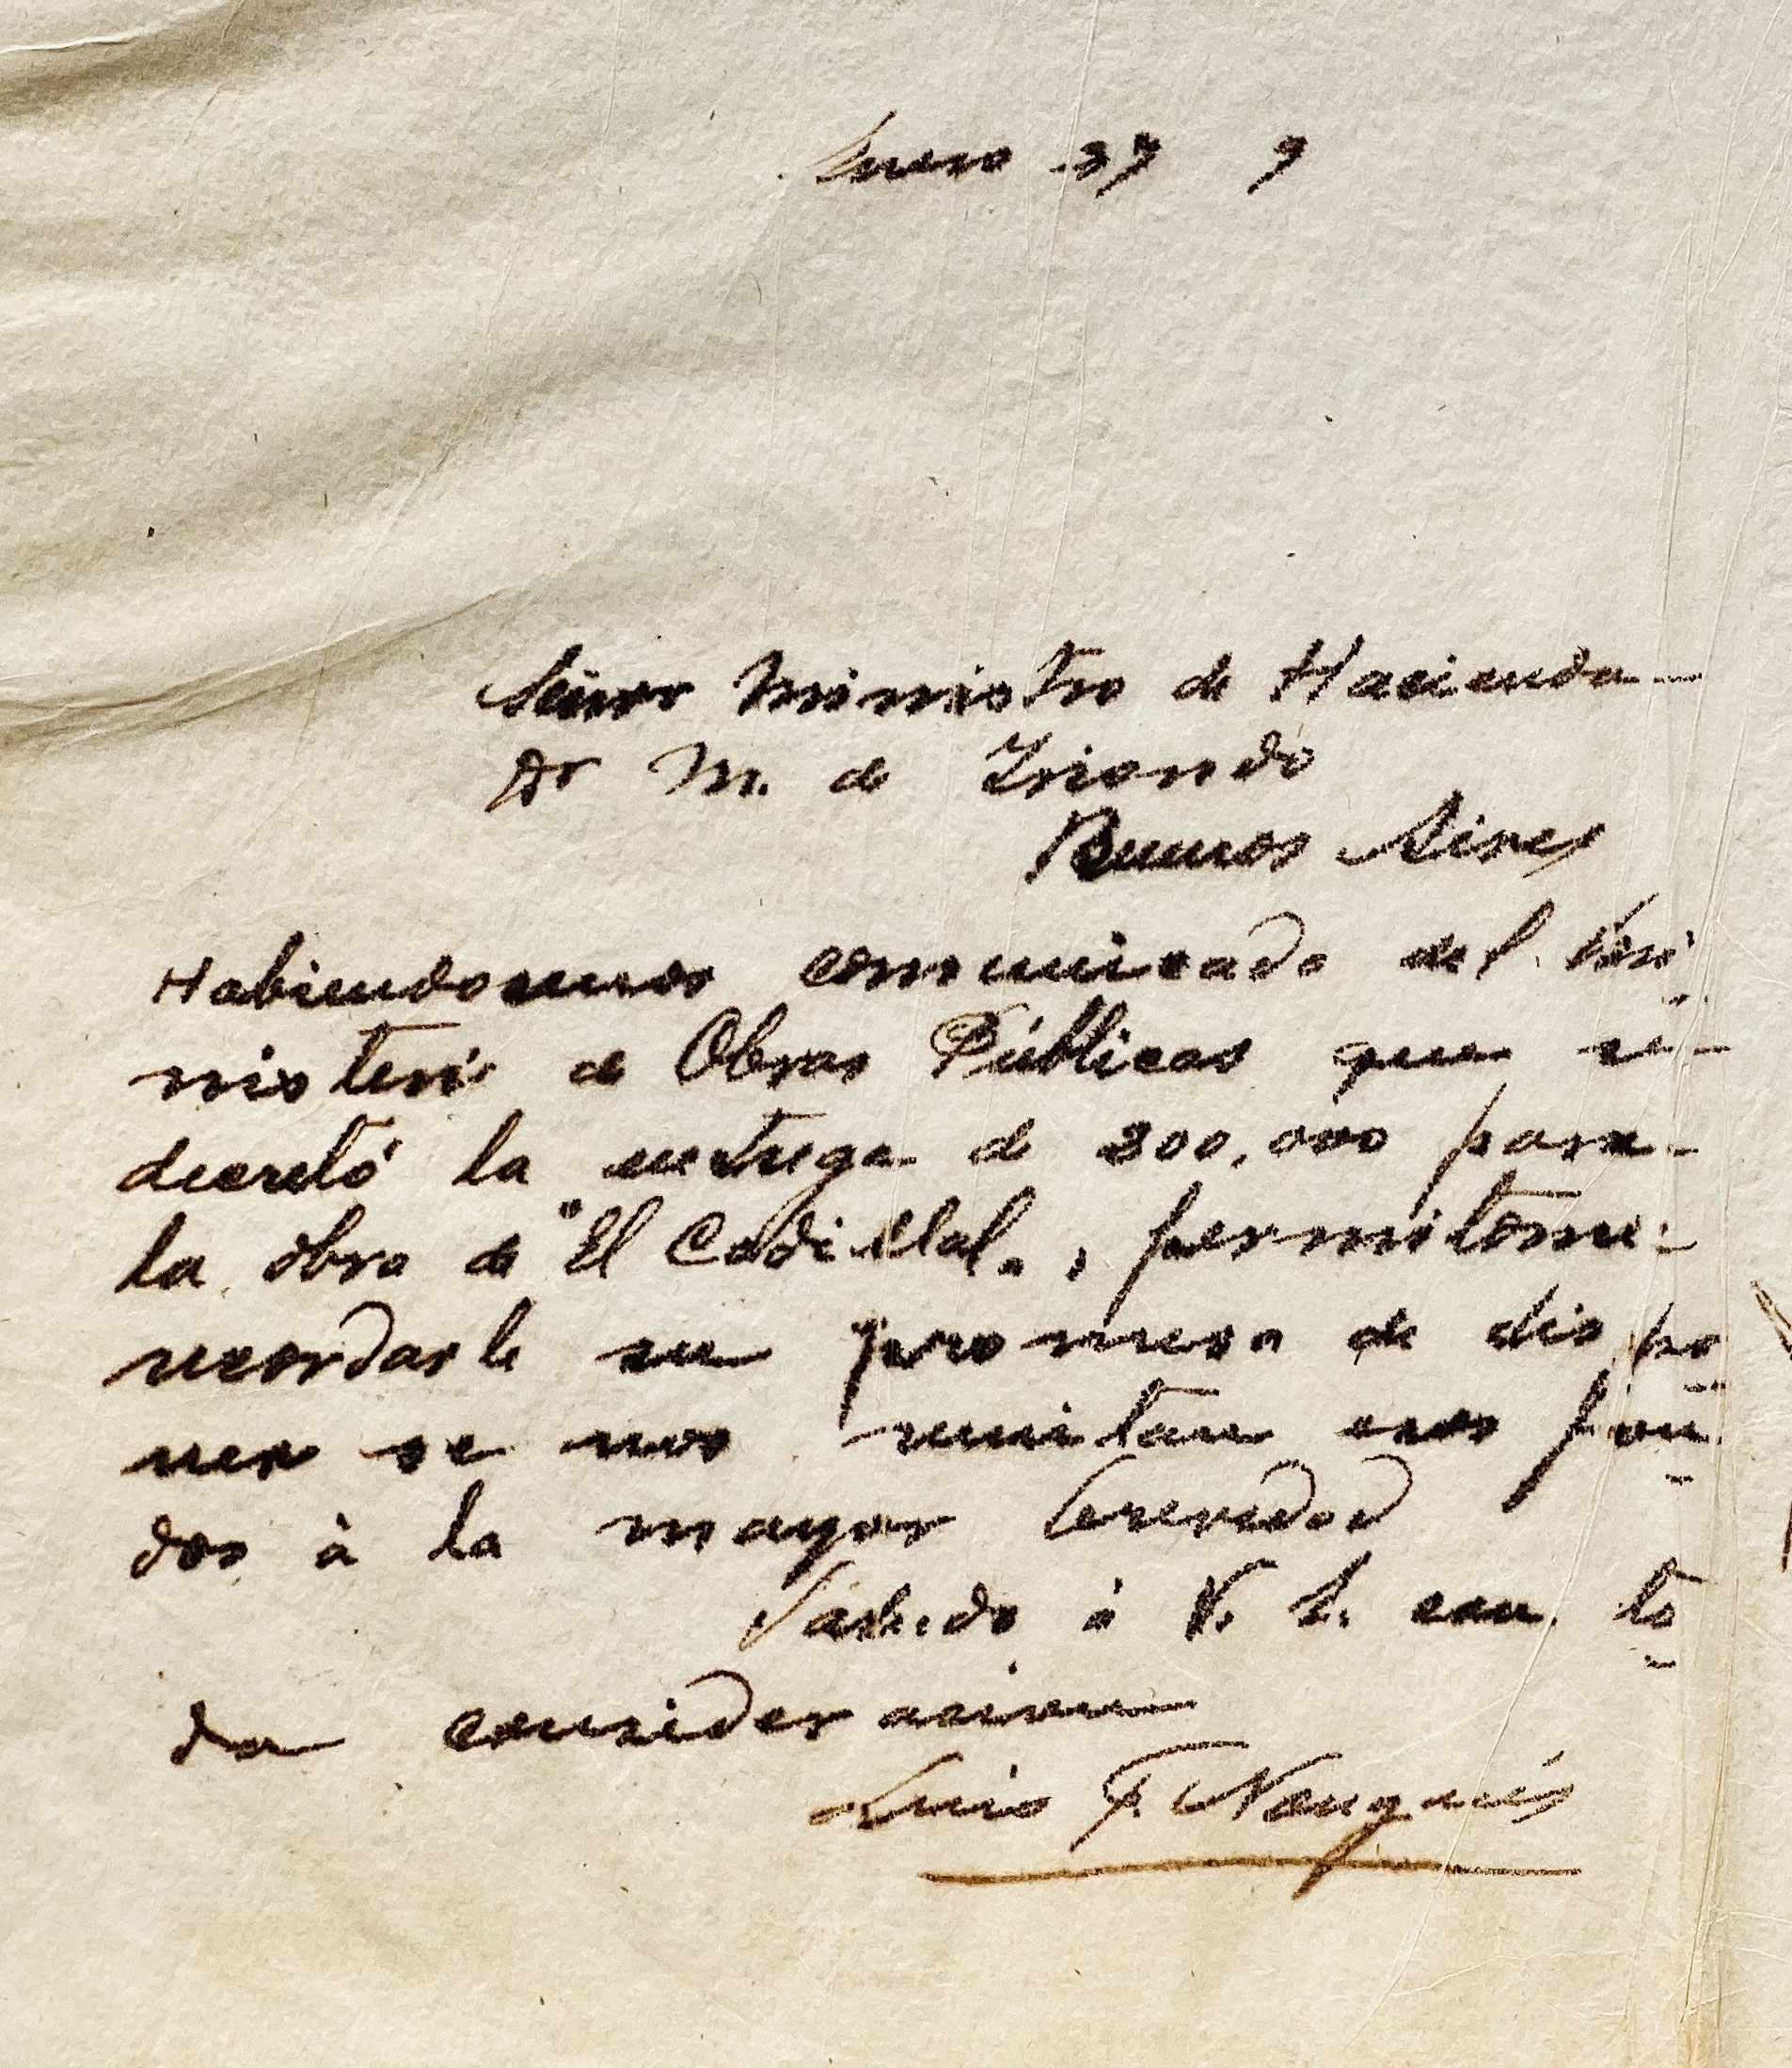 Enero 27 9
Señor Ministro de Hacienda
Dr M. de Iriondo
Buenos Aires
Habiendosenos comunicado del Mi
nisterio de Obras Públicas que se
decretó la entrega de 200,000 para
la obra de "El Cadillal", permítome
recordarle su promesa de dispo
ner se nos remitan esos fon
dos à la mayor brevedad
Saludo à V. E. con to
da consideracion
Luis F. Nougués